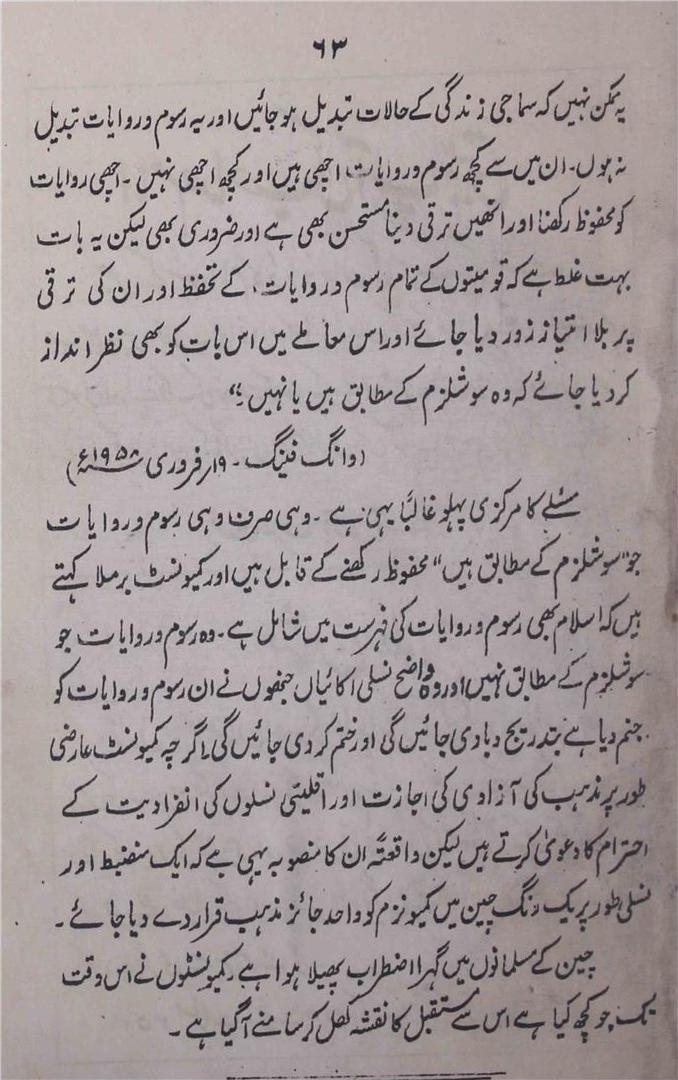 ۶۳
یہ ممکن نہیں کہ سماجی زندگی کے حالات تبدیل ہو جائیں اور یہ رسوم و روایات تبدیل
نہ ہوں۔ ان میں سے کچھ رسوم و روایات اچھی ہیں اور کچھ اچھی نہیں۔ اچھی روایات
کو محفوظ رکھنا اور انھیں ترقی دینا مستحسن بھی ہے اور ضروری بھی لیکن یہ بات
بہت غلط ہے کہ قومیتوں کے تمام رسوم و روایات، کے تحفظ اور ان کی ترقی
پر بلا امتیاز زور دیا جائے اور اس معاملے میں اس بات کو بھی نظر انداز
کر دیا جائے کہ وہ سوشلزم کے مطابق ہیں یا نہیں؟“
(وانگ فینگ۔ ۱۹؍فروری ۱۹۵۸ء)
مسئلے کا مرکزی پہلو غالباً یہی ہے۔ وہی صرف وہی رسوم و روایات
جو ”سوشلزم کے مطابق ہیں“ محفوظ رکھنے کے قابل ہیں اور کمیونسٹ برملا کہتے
ہیں کہ اسلام بھی رسوم و روایات کی فہرست میں شامل ہے۔ وہ رسوم و روایات جو
سوشلزم کے مطابق نہیں اور وہ واضح نسلی اکائیاں جنھوں نے ان رسوم و روایات کو
جنم دیا ہے بتدریج دبا دی جائیں گی اور ختم کر دی جائیں گی۔ اگرچہ کمیونسٹ عارضی
طور پر مذہب کی آزادی کی اجازت اور اقلیتی نسلوں کی انفرادیت کے
احترام کا دعویٰ کرتے ہیں لیکن واقعتہً ان کا منصوبہ یہی ہے کہ ایک منضبط اور
نسلی طور پر یک رنگ چین میں کمیونزم کو واحد جائز مذہب قرار دے دیا جائے۔
چین کے مسلمانوں میں گہرا اضطراب پھیلا ہوا ہے۔ کمیونسٹوں نے اس وقت
تک جو کچھ کیا ہے اس سے مستقبل کا نقشہ کھل کر سامنے آ گیا ہے۔